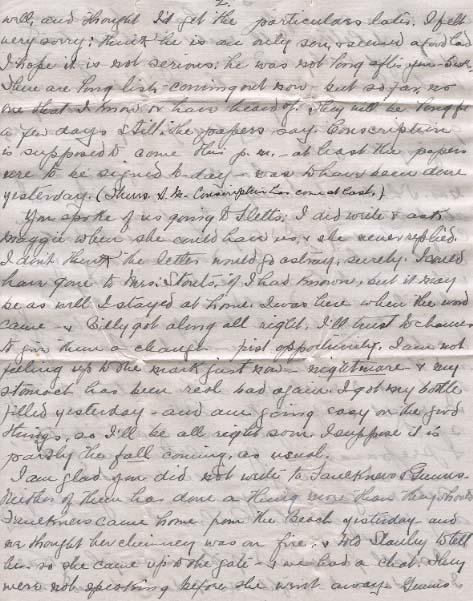 2.
well, and thought I'd get the particulars later. I felt
very sorry; think he is an only son, & seemed a good lad
I hope it is not serious; he was not long after you
There are long lists coming out now but so far, no
one that I know or have heard of. They will be long for
a few days still, the papers say. Conscription
is supposed to come this p.m. at least the papers
were to be signed to-day - was to have been done
yesterday. (Thurs. A.M. Conscription has come at last.)
You spoke of us going to I did write & ask
Maggie when she could have us, & she never replied.
I don't think the letter would go astray, surely. I could
have gone to Mrs. if I had known, but it may
be as well I stayed at home. I was here when the word
came - & Billy got along all right. I'll trust to chance
to give them a change - first opportunity. I am not
feeling up to the mark just now - nightmare & my
stomach has been real bad again. I got my bottle
filled yesterday - and am going easy on the good
things, so I'll be all right soon. I suppose it is
partly the fall coming, as usual.
I am glad you did not write to Faulkners & Gunns.
Neither of them has done a thing more than they should
Faulkners came home from the beach yesterday and
we thought her chimney was on fire, & told Stanley to tell
her so she came up to the gate - & we had a chat. They
were not speaking before she went away. Gunns